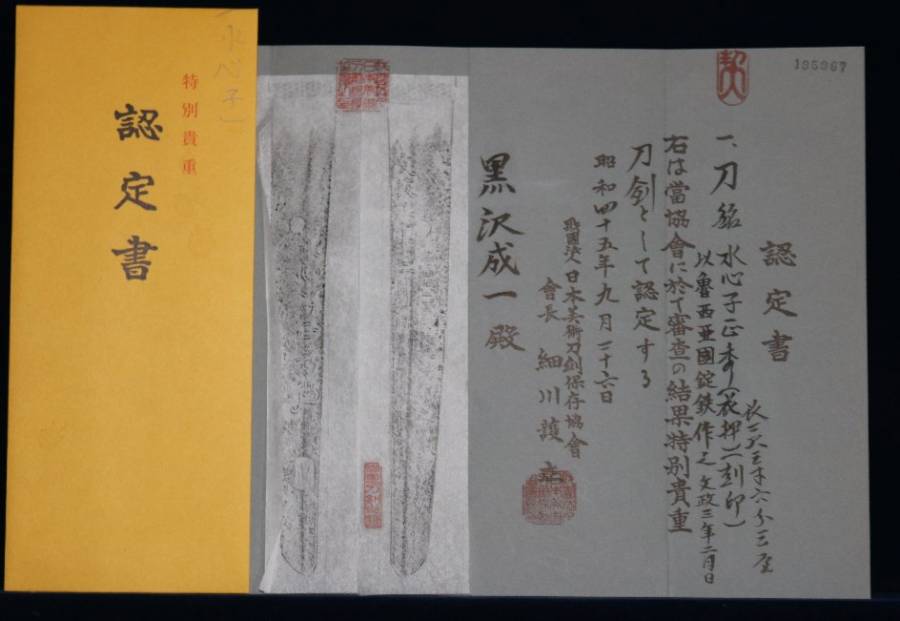 水心子
特別貴重
認定書
195967
認定書
一、刀 銘 水心子正秀(花押)(刻印)
以魯西亜國錠鉄作之 文政三年二月日
長二尺三寸六分三厘
右は當協會に於て審査の結果特別貴重
刀剣として認定する
昭和四十五年九月二十六日
日本美術刀剣保存協會
會長 細川護立
黒沢成一殿